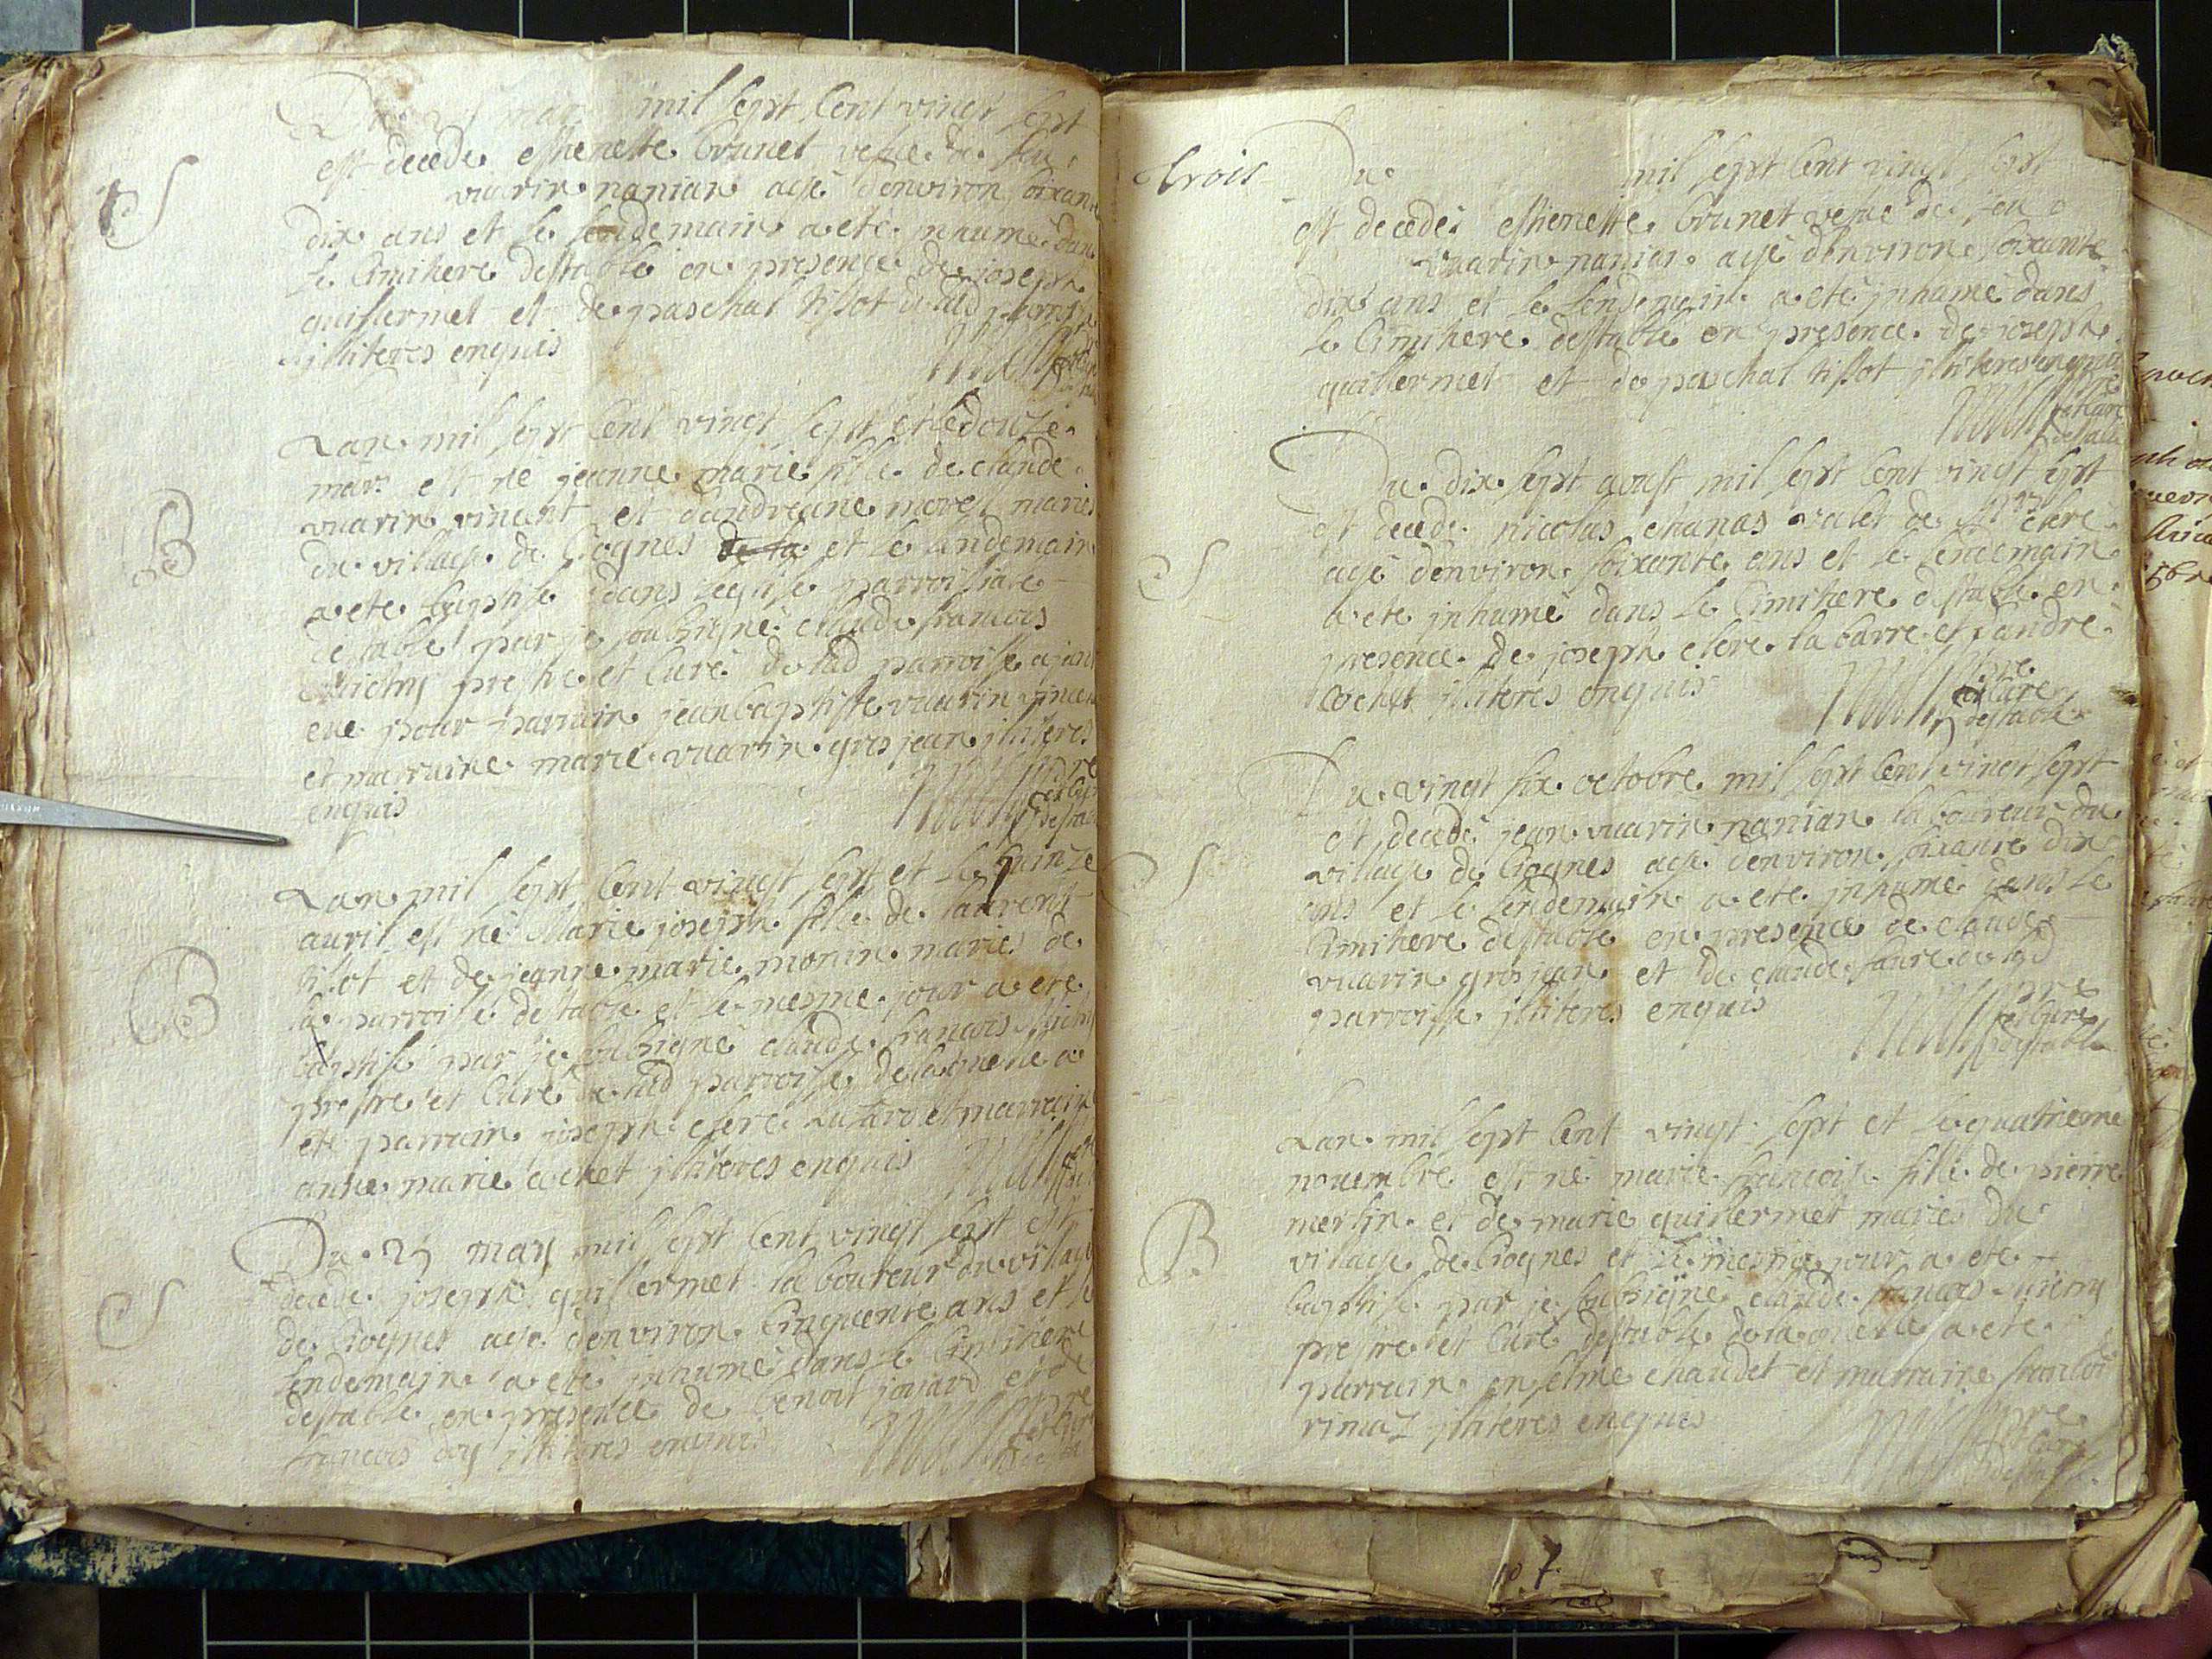 S
Du mars mil sept cent vingt sept
est decedé esthenette brunet vefue de feu
vuarin nanian agé denviron soixante
dix ans et le lendemain a eté inhumé dans
le cimithere destable en presence de joseph
guillermet et de paschal tissot
illiteres enquis
B
Lan mil sept cent vingt sept et le douze
mars est né jeanne marie fille de claude
vuarin vincent et dandreane morel mariés
du village de Crognes de la et le lendemain
a eté baptisé dans leglise parroissiale
destable par je soubsigné claude francois
prestre et curé de lad parroisse ajant
eue pour parrain jean baptiste vuarin vincent
et marraine marie vuarin gros jean illiteres
enquis
B
Lan mil sept cent vingt sept et le quinze
auril est né Marie joseph fille de laurent
tissot et de jeanne marie monin mariés de
la parroisse destable et le mesme jour a eté
baptisé par je soubsigné claude francois
prestre et curé de lad parroisse de laquelle a
eté parrain joseph clere et marraine
anne marie cochet illiteres enquis
S
Du 25 may mil sept cent vingt sept est
decedé joseph guillermet laboureur du village
de Crognes agé denviron cinquente ans et le
lendemain a eté inhumé dans le cimithere
destable en presence de benoit jouard et de
francois illiteres enquis
trois
Du mil sept cent vingt sept
est decedé esthenette brunet vefue de feu
vuarin nanian agé denviron soixante
dix ans et le lendemain a eté inhumé dans
le cimithere destable en presence de joseph
guillermet et de paschal tissot illiteres enquis
S
Du dix sept aoust mil sept cent vingt sept
est decedé nicolas chanas valet de clere
agé denviron soixante ans et le lendemain
a eté inhumé dans le cimithere destable en
presence de joseph clere la barre et dandre
cochet illiteres enquis
pre
et curé
destable
S
Du vingt six octobre mil sept cent vingt sept
est decedé jean vuarin nanian laboureur du
village de Crognes agé denviron soixante dix
ans et le lendemain a eté inhumé dans le
cimithere destable en presence de claude
vuarin gros jean et de claude faure de lad
parroisse illiteres enquis
pre
et curé
destable
B
Lan mil sept cent vingt sept et le quatrieme
nouembre est né marie francoise fille de pierre
merlin et de marie guillermet mariés du
village de Crognes et le mesme jour a eté
baptisé par je soubsigné claude francois
prestre et curé destable de laquelle a eté
parrain enselme chaudet et marraine
rimaz illiteres enquis
pre
et curé
destable